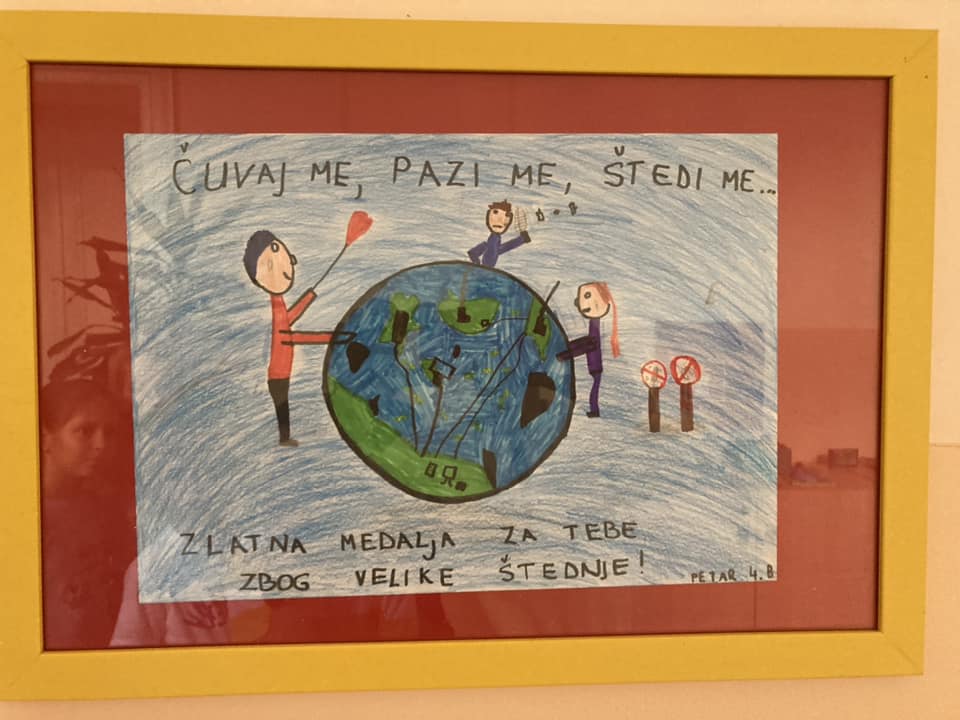 ČUVAJ ME, PAZI ME, ŠTEDI ME...
ZLATNA MEDALJA ZA TEBE
ZBOG VELIKE ŠTEDNJE!
PETAR 4.B